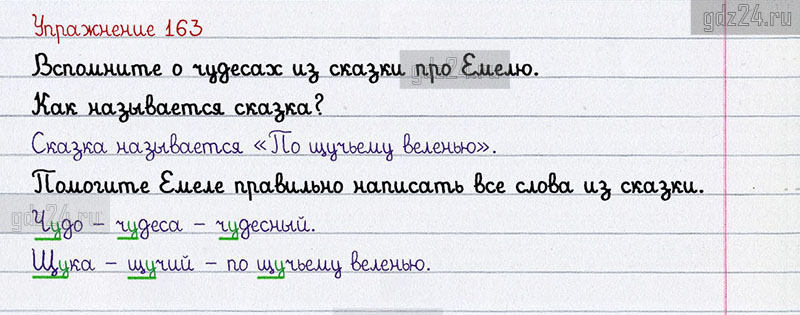 Упражнение 163
gdz24.ru
Вспомните о чудесах из сказки про Емелю.
Как называется сказка?
Сказка называется «По щучьему веленью».
Помогите Емеле правильно написать все слова из сказки.
gdz24.ru
Чудо – чудеса – чудесный.
Щука – щучий – по щучьему веленью.